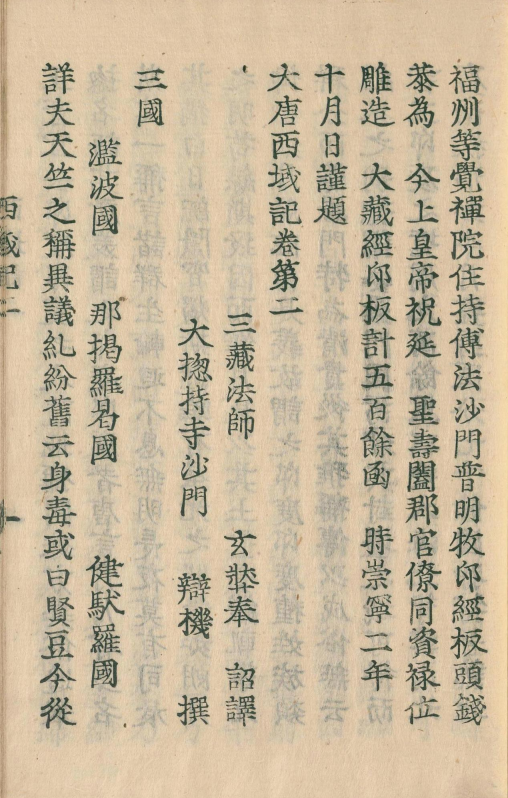 福州等覺禪院住持傳法沙門普明收印經板頭錢
恭為　今上皇帝祝延　聖壽闔郡官僚同資禄位
雕造　大藏經印板計五百餘函　時崇寧二年
十月日謹題
大唐西域記卷第二
三藏法師　玄奘奉　詔譯
大揔持寺沙門　辯機　撰
三國
濫波國　那揭羅曷國　健馱羅國
詳夫天竺之稱異議糺紛舊云身毒或曰賢豆今從
西域記二